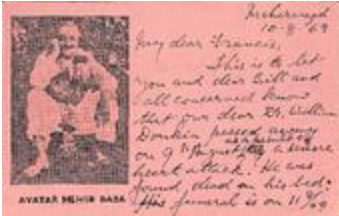 10-8-69
My dear Francis,
This is to let
you and dear Bill and
all concerned know
that our dear Dr. William
Donkin passed away
on 9th August, a severe
heart attack. He was
found dead on his bed.
His funeral is on 11/8/69
AVATAR MEHER BABA